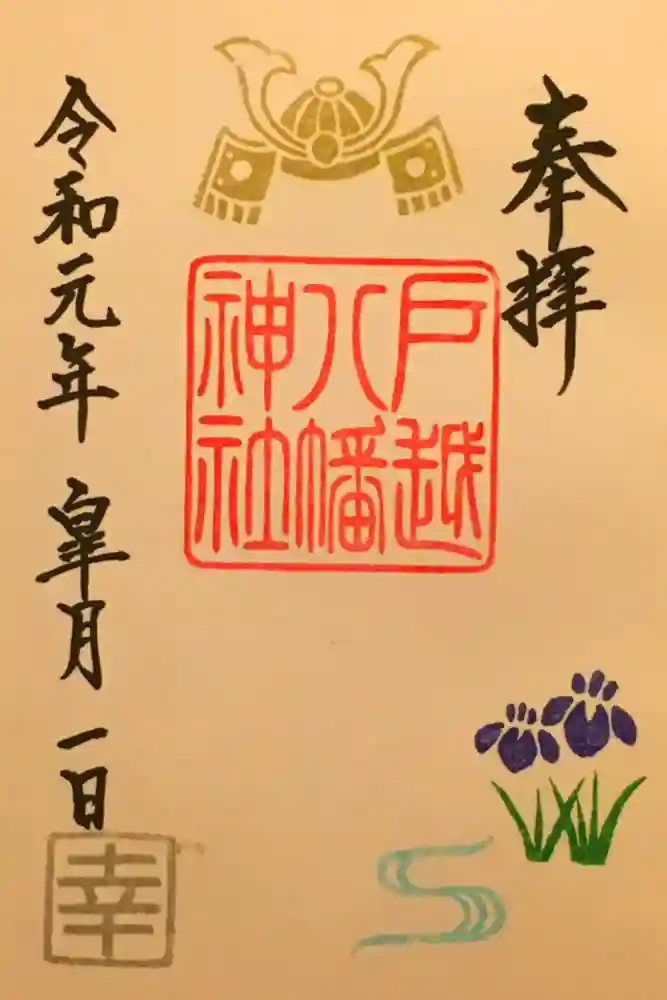 奉拝
戸越
八幡
神社
令和元年 皐月 一日
幸